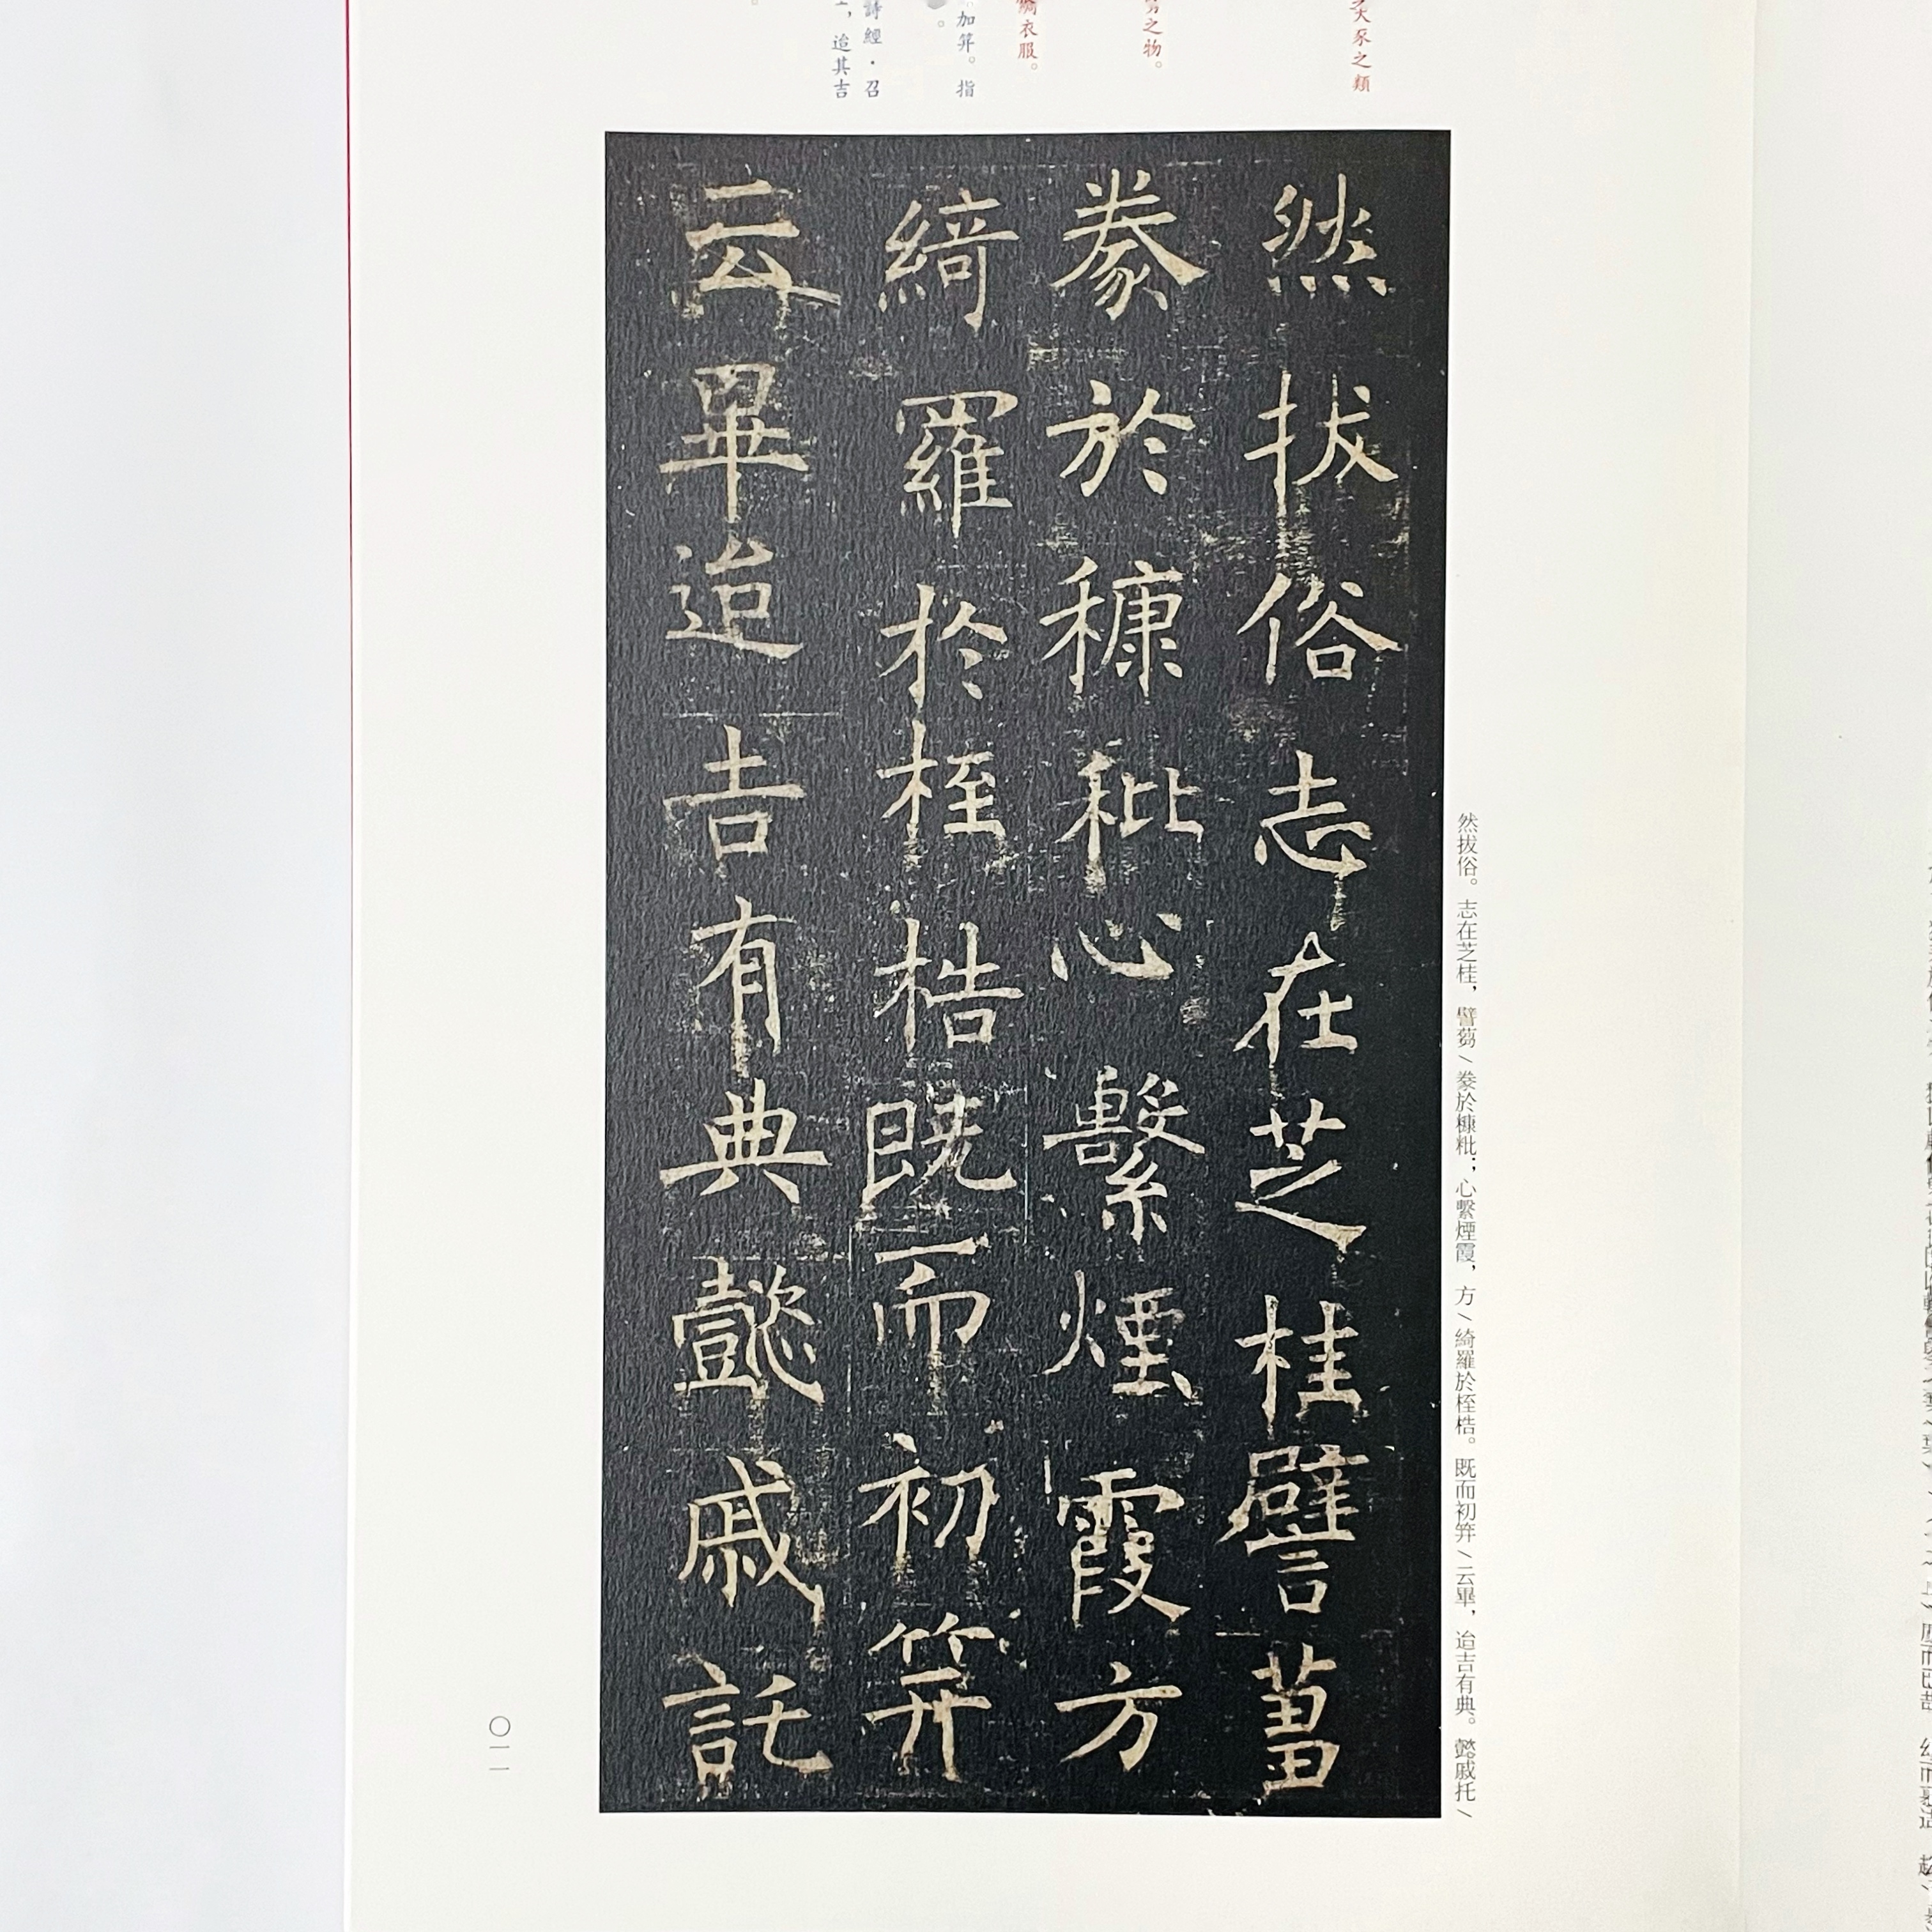 犬豕之類
之物。
衣服。
加笄。指
詩經·召
迨其吉
然拔俗志在芝桂譬蒭
豢於穅秕心繫煙霞方
綺羅於桎梏既而初笄
云畢迨吉有典懿戚託
然拔俗。志在芝桂，譬蒭\豢於穅粃；心繫煙霞，方\綺羅於桎梏。既而初笄\云畢，迨吉有典。懿戚托\
〇一一